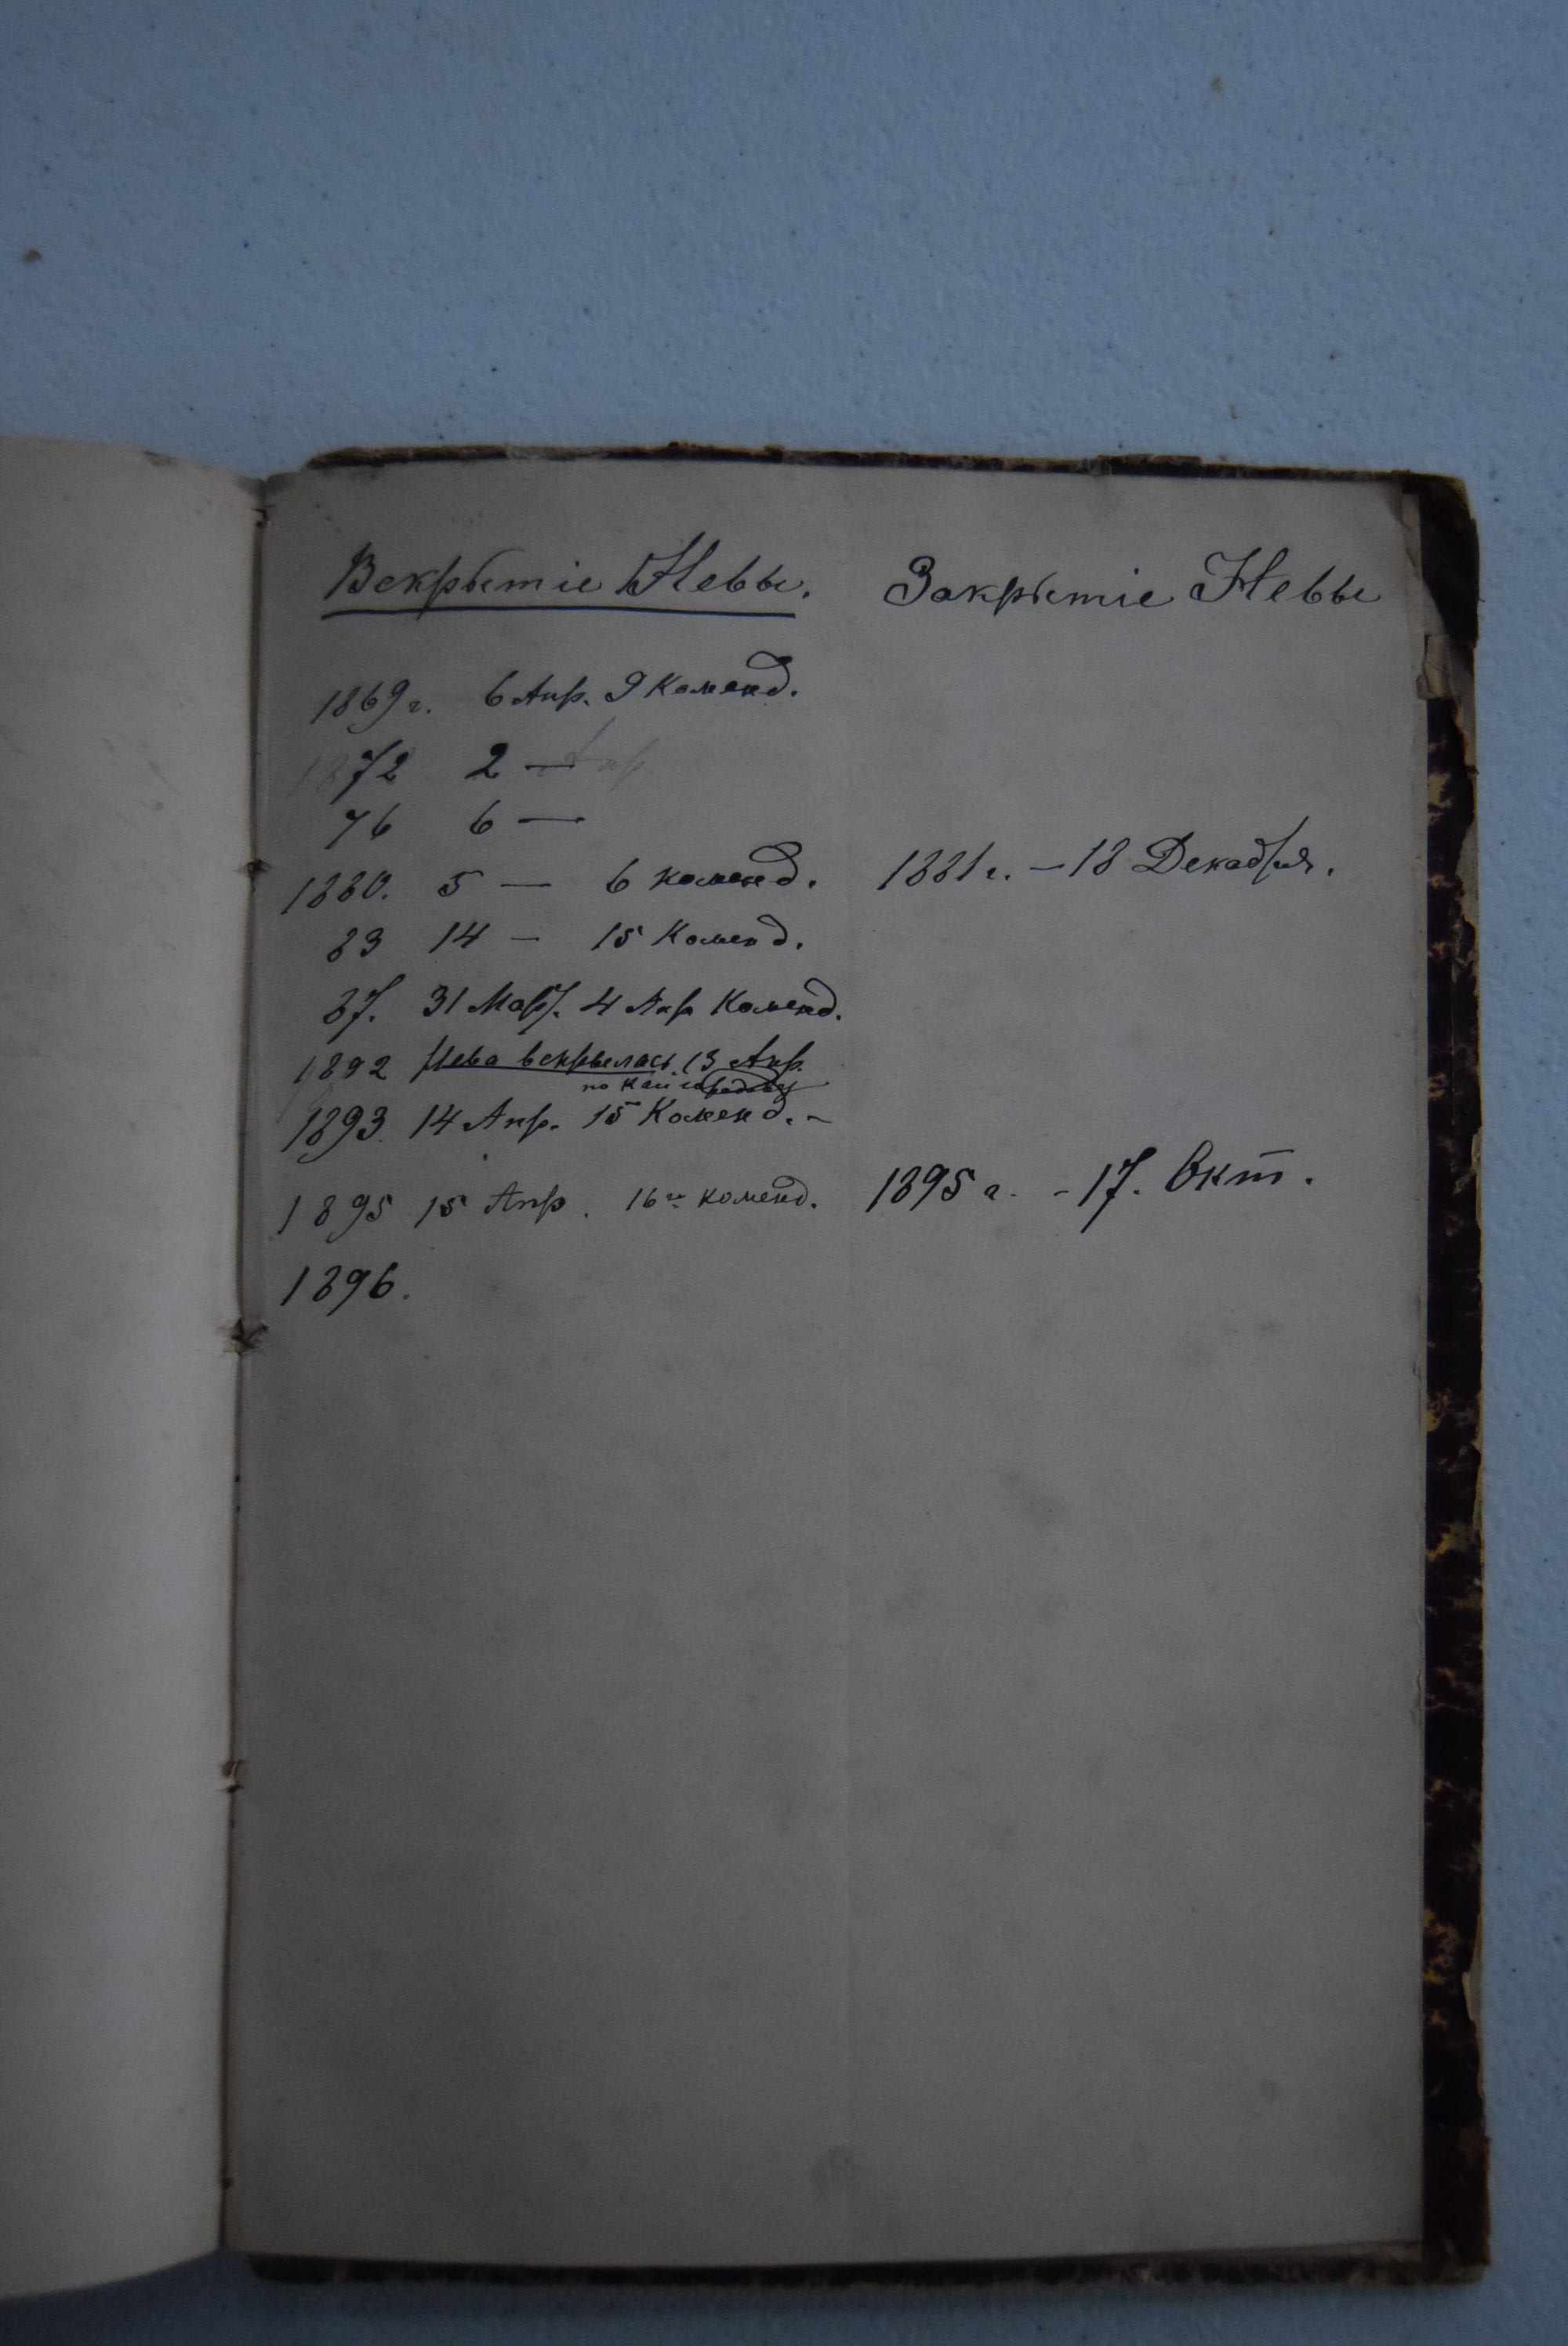 Вскрытіе Невы.
Закрытіе Невы
1869 г. 6 Апр. 9 Коменд.
1872 2 — Апр
76 6 —
1880. 5 — 6 коменд.
1881 г. — 18 Декабря.
83 14 — 15 Коменд.
87. 31 Мар. 4 Апр Коменд.
1892 Нева вскрылась 13 Апр.
по Кайгородову
1893. 14 Апр. 15 Коменд. -
1895 15 Апр. 16го коменд.
1895 г. - 17. Окт.
1896.